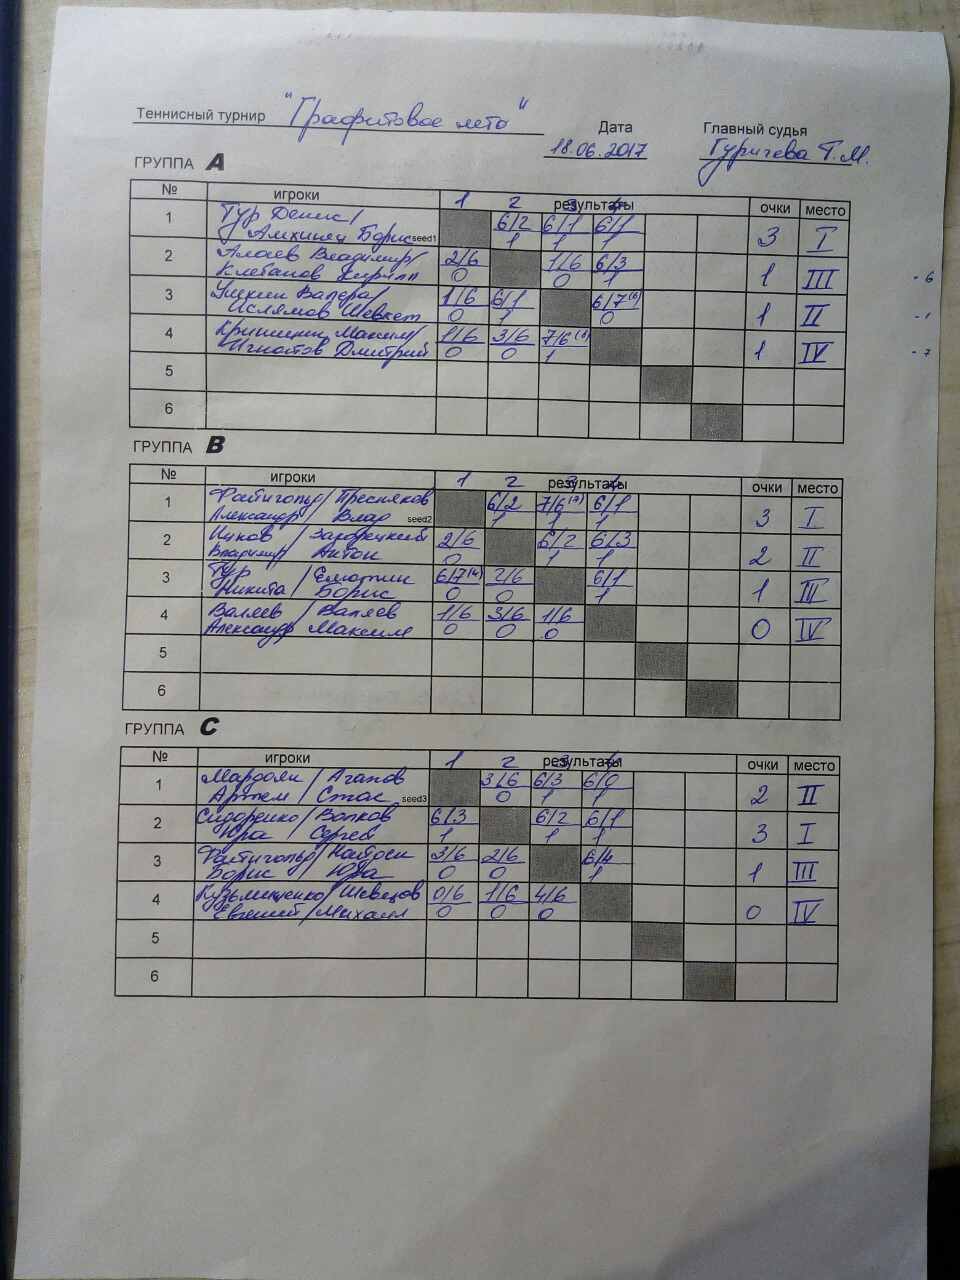 Теннисный турнир "Графитовое лето" Дата Главный судья
18.06.2017 Гуричева Т.М.
ГРУППА A
№ игроки 1 2 3 4 результаты очки место
1 Тур Денис/ 6/2 6/1 6/1 3 I
Борис seed1 1 1 1
2 Владимир/ 2/6 1/6 6/3 1 III - 6
Клебанов Кирилл 0 0 1
3 Валера/ 1/6 6/1 6/7(6) 1 II - 1
Ислямов Шевкет 0 1 0
4 Максим/ 1/6 3/6 7/6(6) 1 IV - 7
Игнатов Дмитрий 0 0 1
5
6
ГРУППА B
№ игроки 1 2 3 4 результаты очки место
1 Файнгольд/Пресняков 6/2 7/6(4) 6/1 3 I
Александр/Влад seed2 1 1 1
2 2/6 6/2 6/3 2 II
Владимир/Антон 0 1 1
3 Тур 6/7(4) 2/6 6/1 1 III
Никита/Борис 0 0 1
4 Валяев/Валяев 1/6 3/6 1/6 0 IV
Александр Максим 0 0 0
5
6
ГРУППА C
№ игроки 1 2 3 4 результаты очки место
1 /Агапов 3/6 6/3 6/0 2 II
Артем/Стас seed3 0 1 1
2 Сидоренко/Волков 6/3 6/2 6/1 3 I
Юра/Сергей 1 1 1
3 Файнгольд/ 3/6 2/6 6/4 1 III
Борис Юра 0 0 1
4 Кузьмиценко/Шевцов 0/6 1/6 4/6 0 IV
Евгений/Михаил 0 0 0
5
6